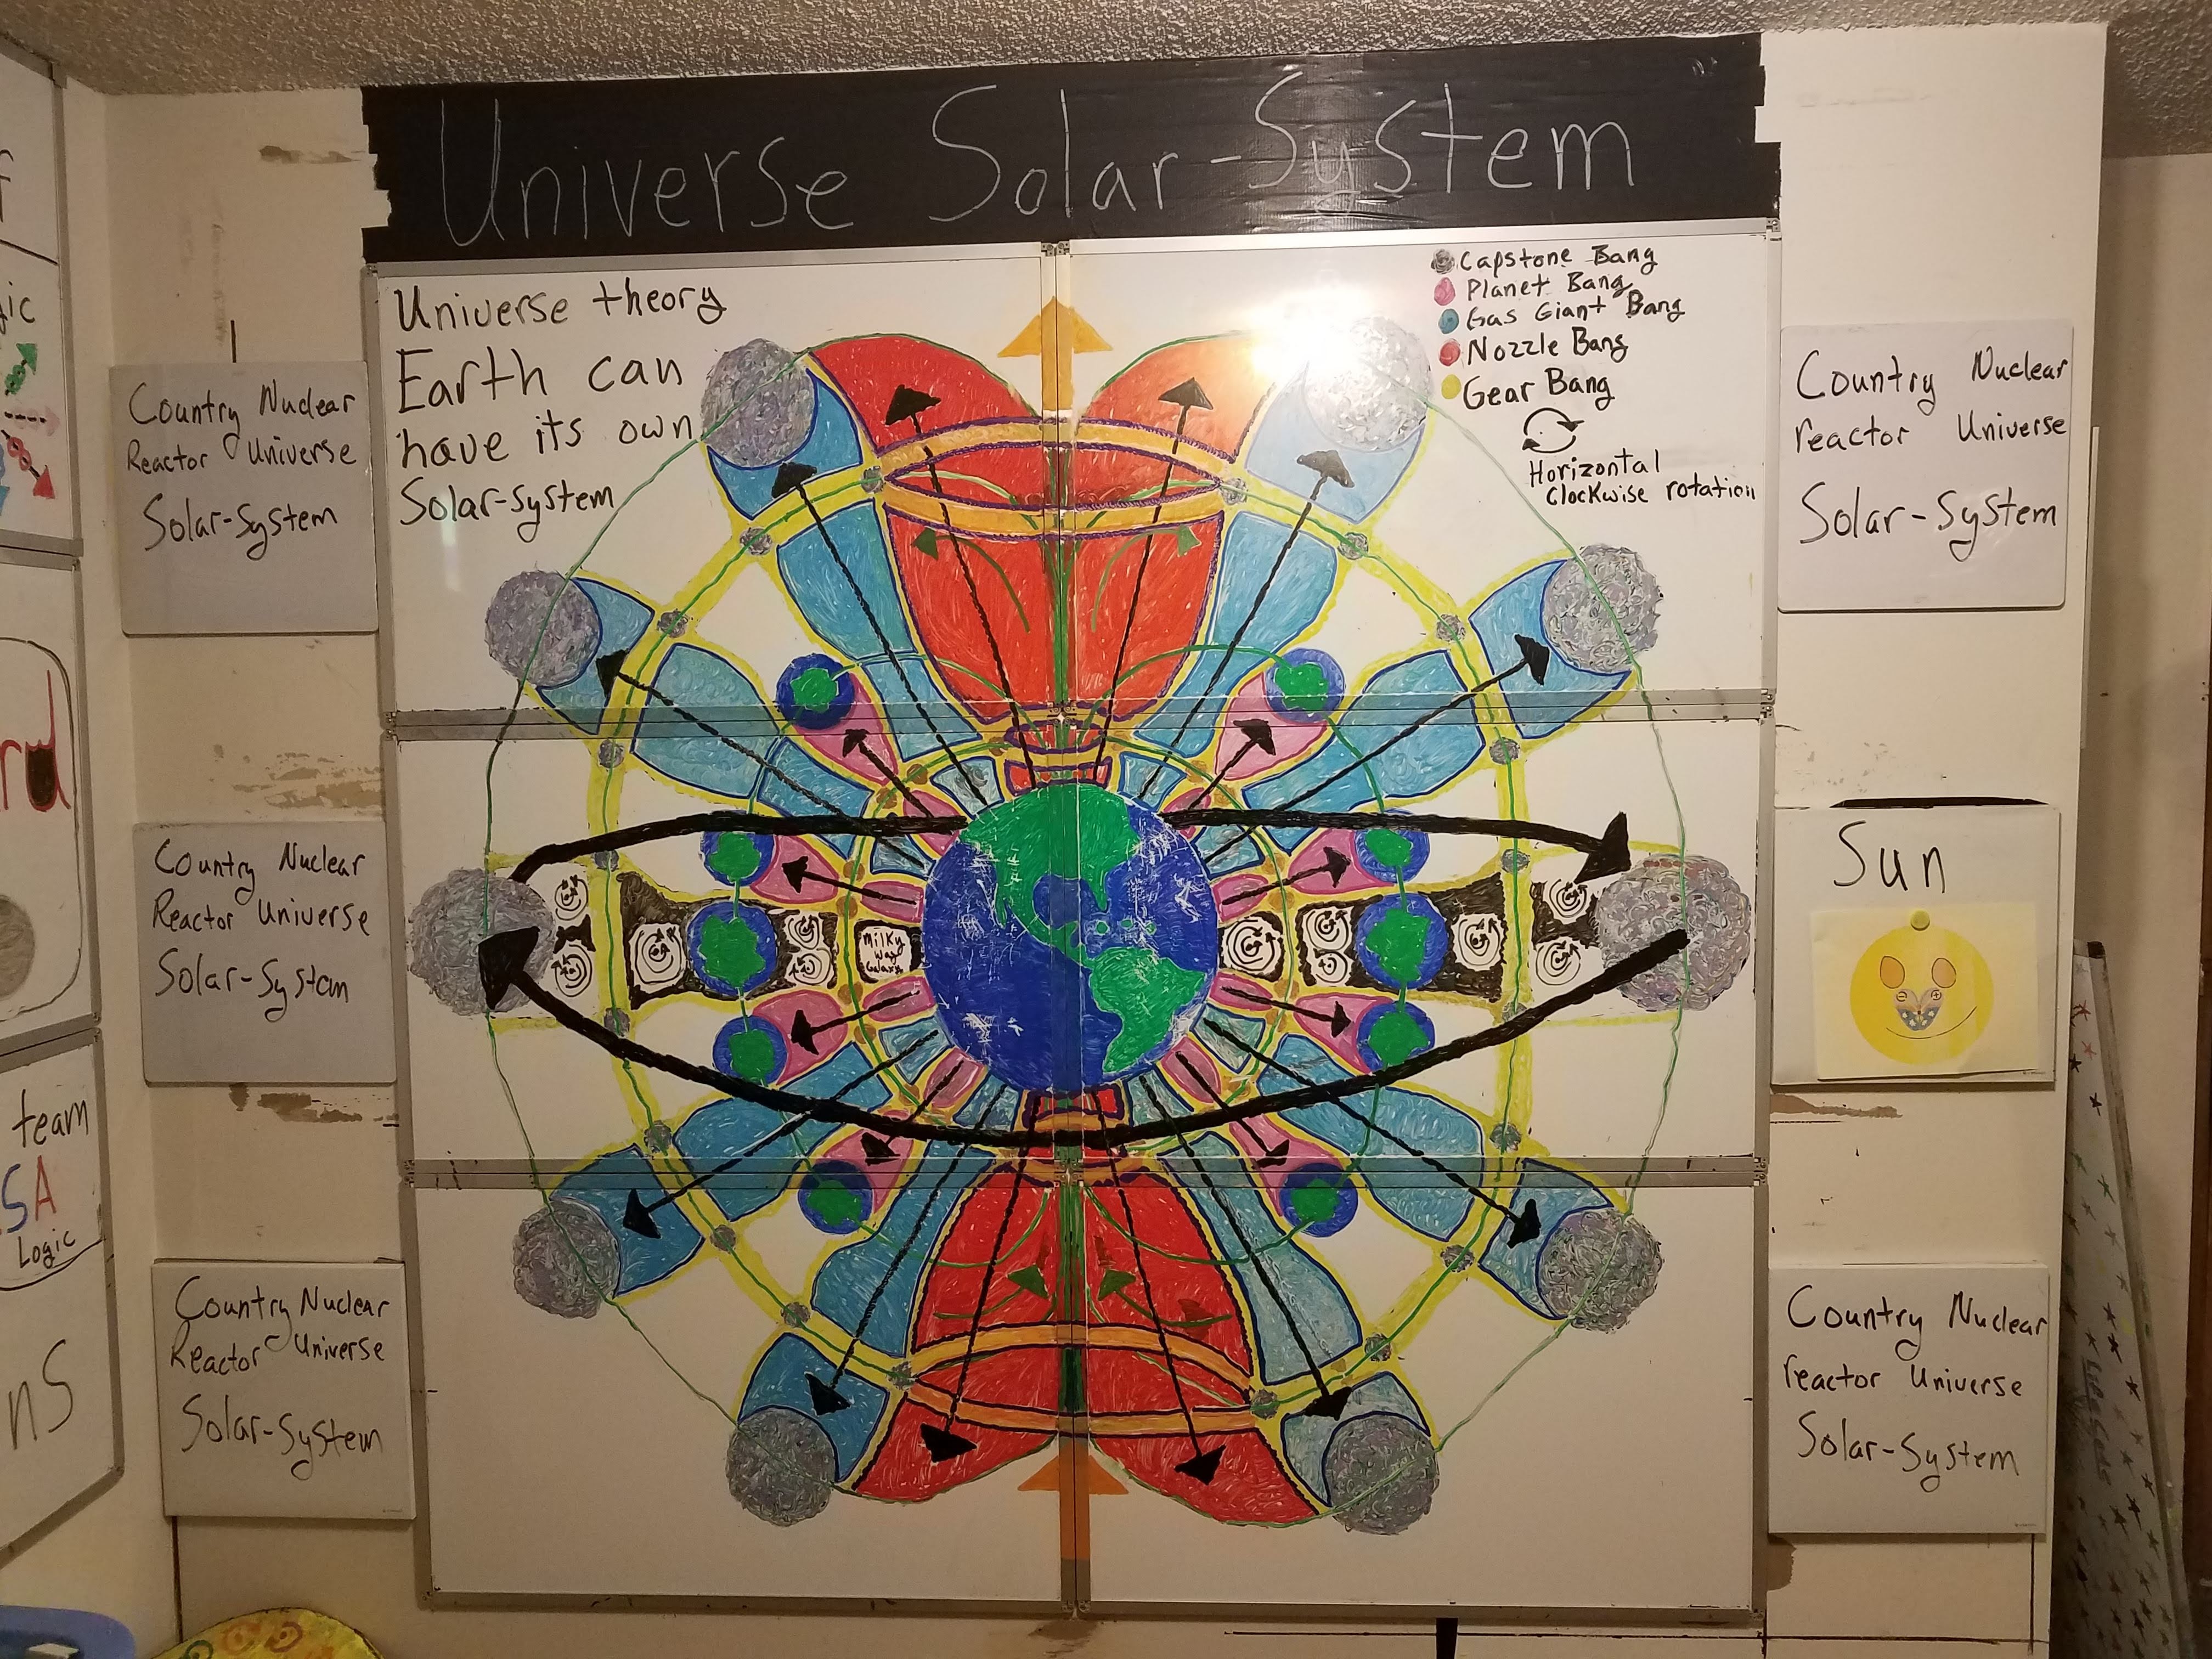 Universe Solar-System
Universe theory
Earth can
have its own
Solar-System
Capstone Bang
Planet Bang
Gas Giant Bang
Nozzle Bang
Gear Bang
Horizontal
Clockwise rotation
Milky
Way
Galaxy
Country Nuclear
Reactor Universe
Solar-System
Country Nuclear
Reactor Universe
Solar-System
Country Nuclear
Reactor Universe
Solar-System
Country Nuclear
reactor Universe
Solar-System
Sun
Country Nuclear
reactor Universe
Solar-System
ic
rd
team
SA
Logic
nS